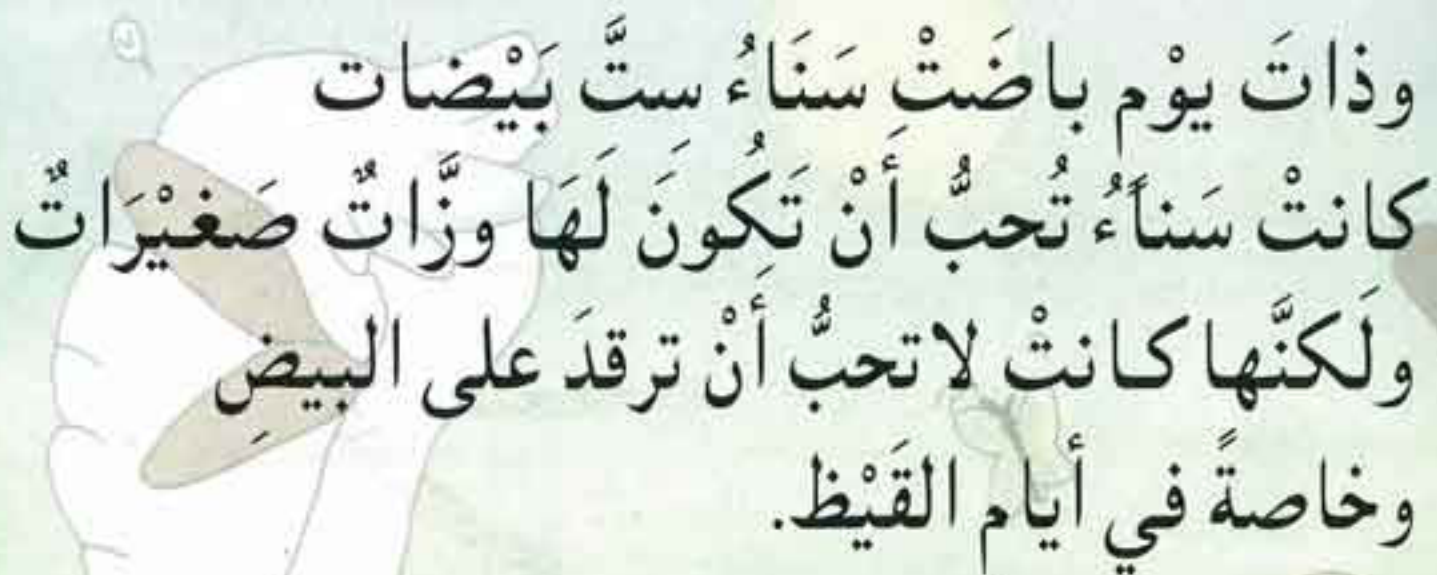 وذاتَ يوْم باضَتْ سَنَاءُ سِتَّ بَيْضات
كانتْ سَناءُ تُحبُّ أَنْ تَكُونَ لَهَا وزَّاتٌ صَغيْرَاتٌ
ولَكنَّها كانتْ لاتحبُّ أَنْ ترقدَ على البيضِ
وخاصةً في أيام القَيْظ.